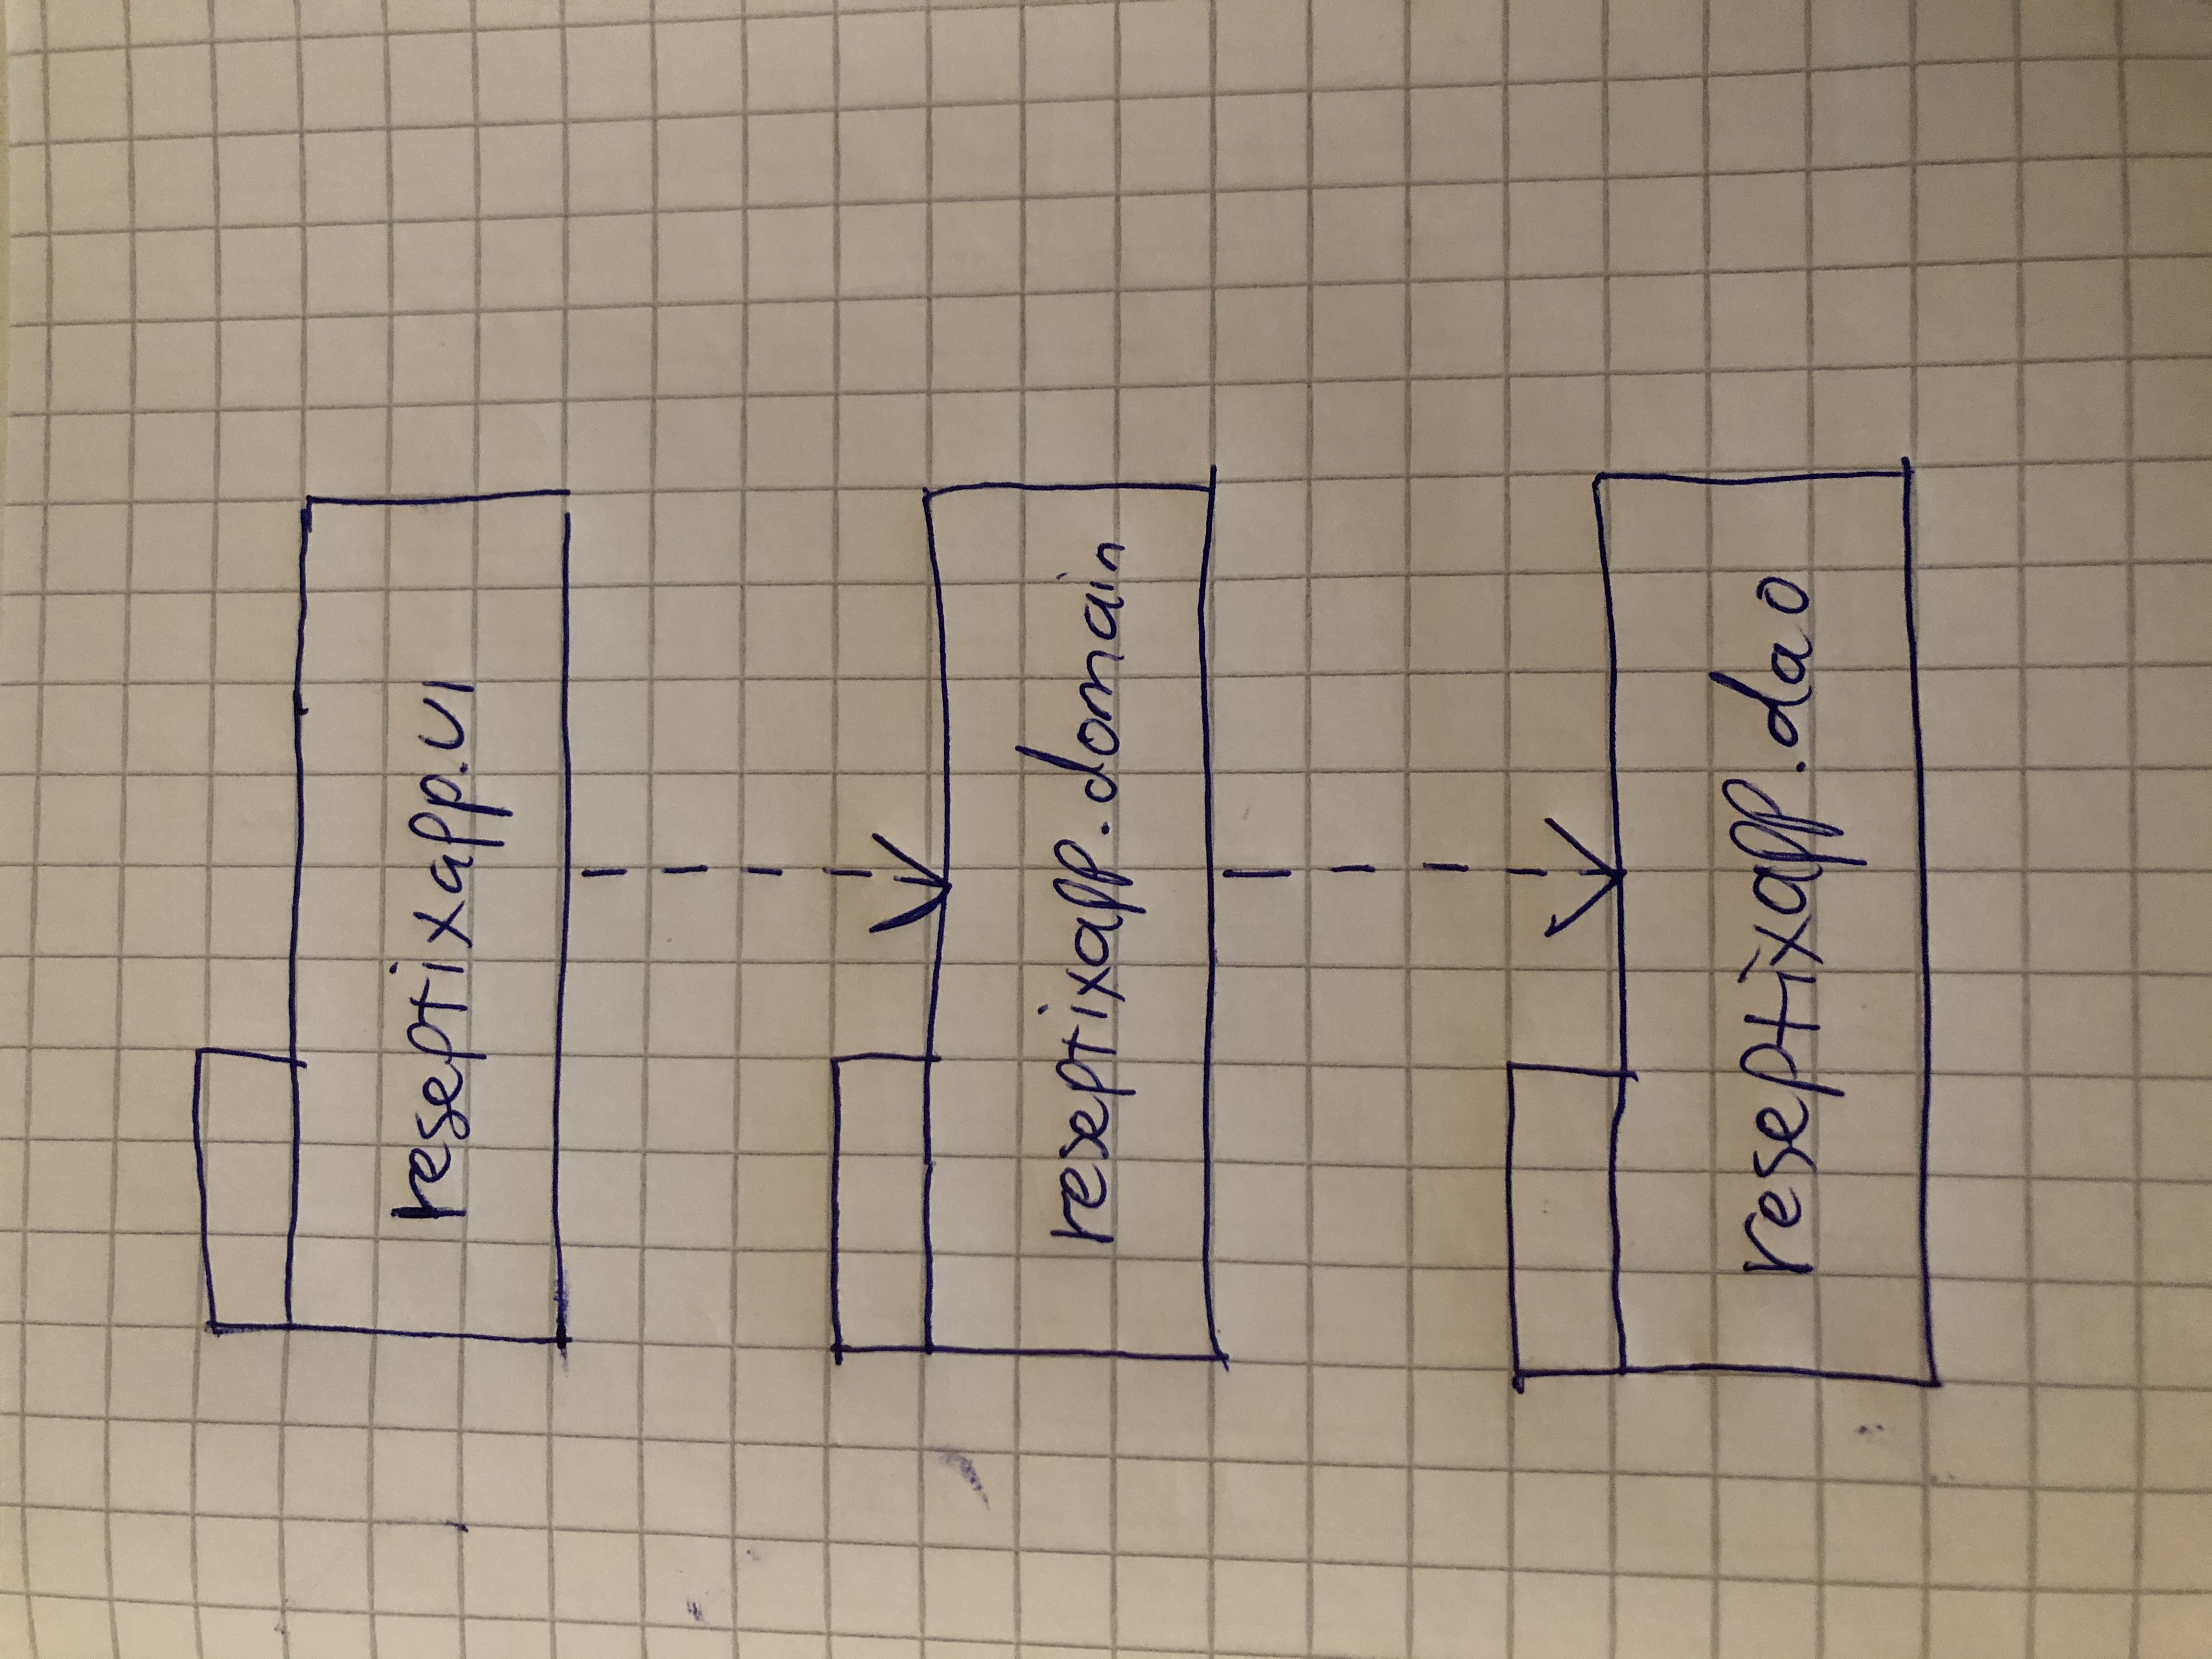 reseptixapp.ui
reseptixapp.domain
reseptixapp.dao